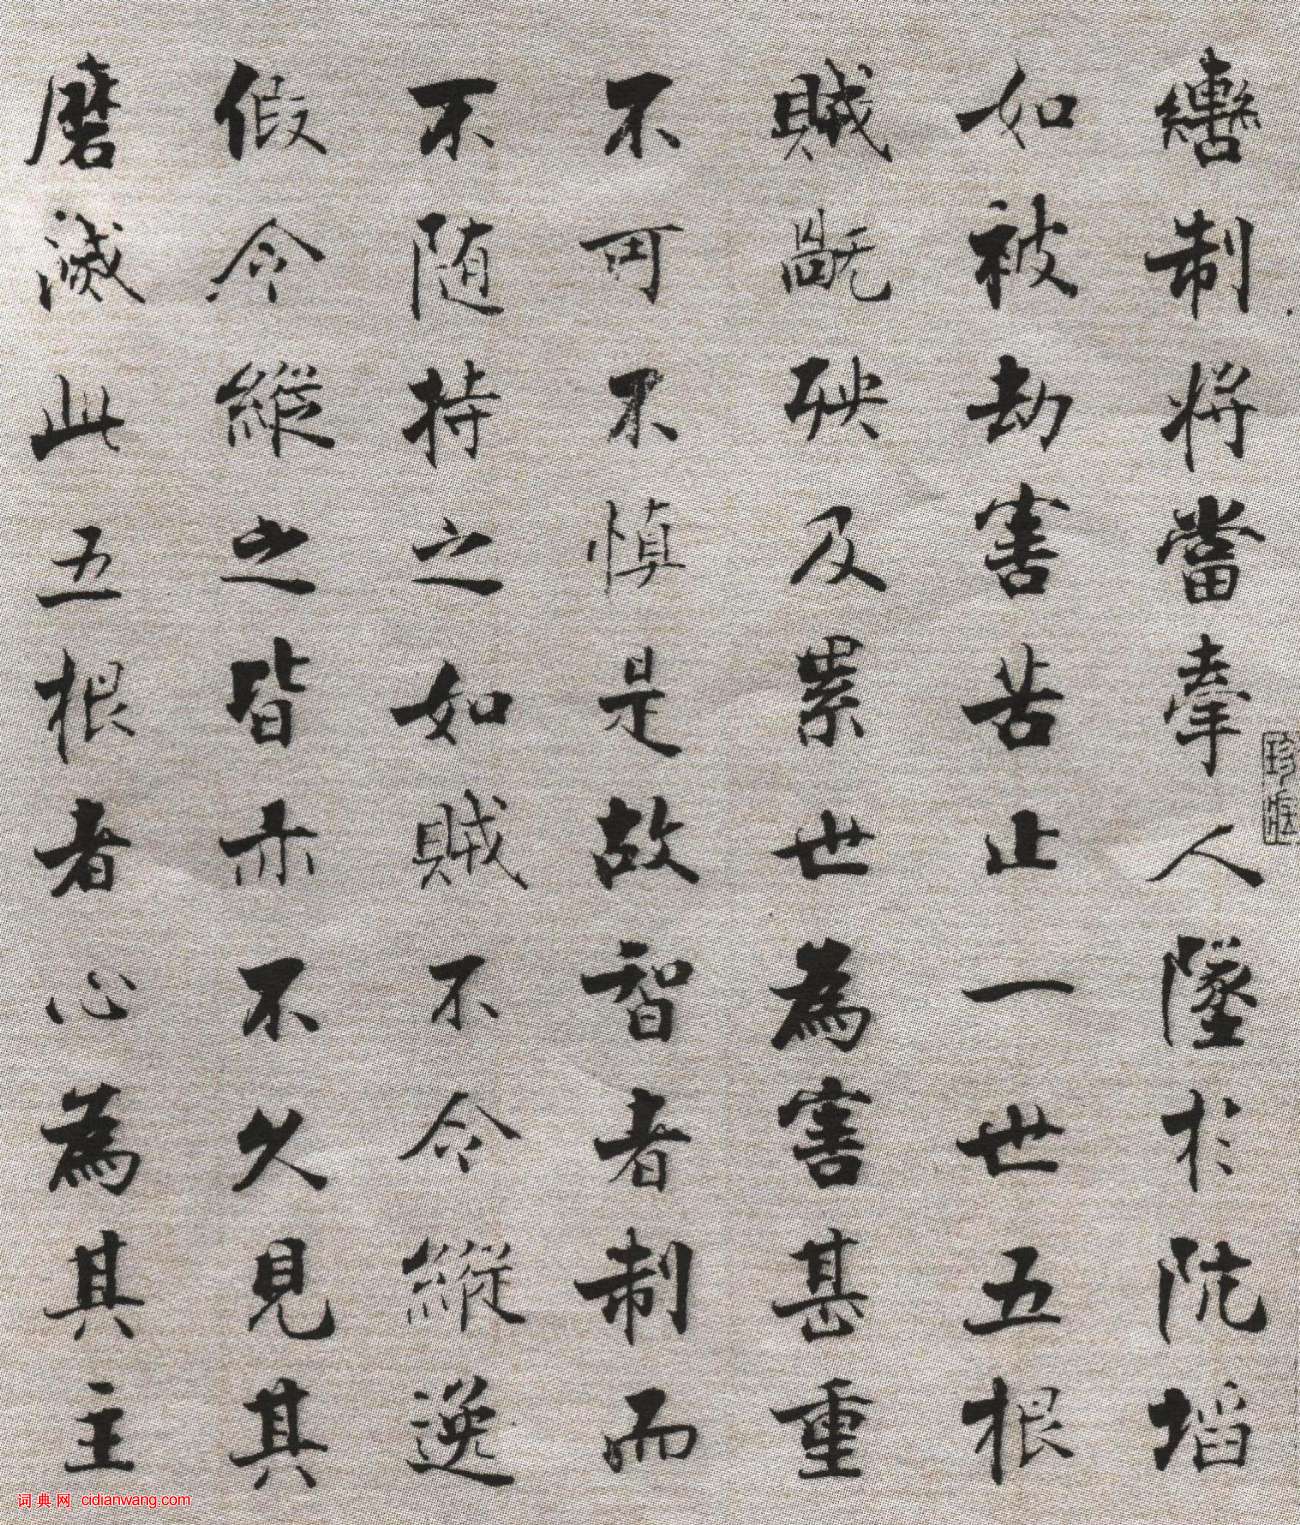 轡制將當牽人墜於阬埳
如被劫害苦止一世五根
賊禍殃及累世為害甚重
不可不慎是故智者制而
不随持之如賊不令縱逸
假令縱之皆亦不久見其
磨滅此五根者心為其主
珍藏
词典网 cidianwang.com